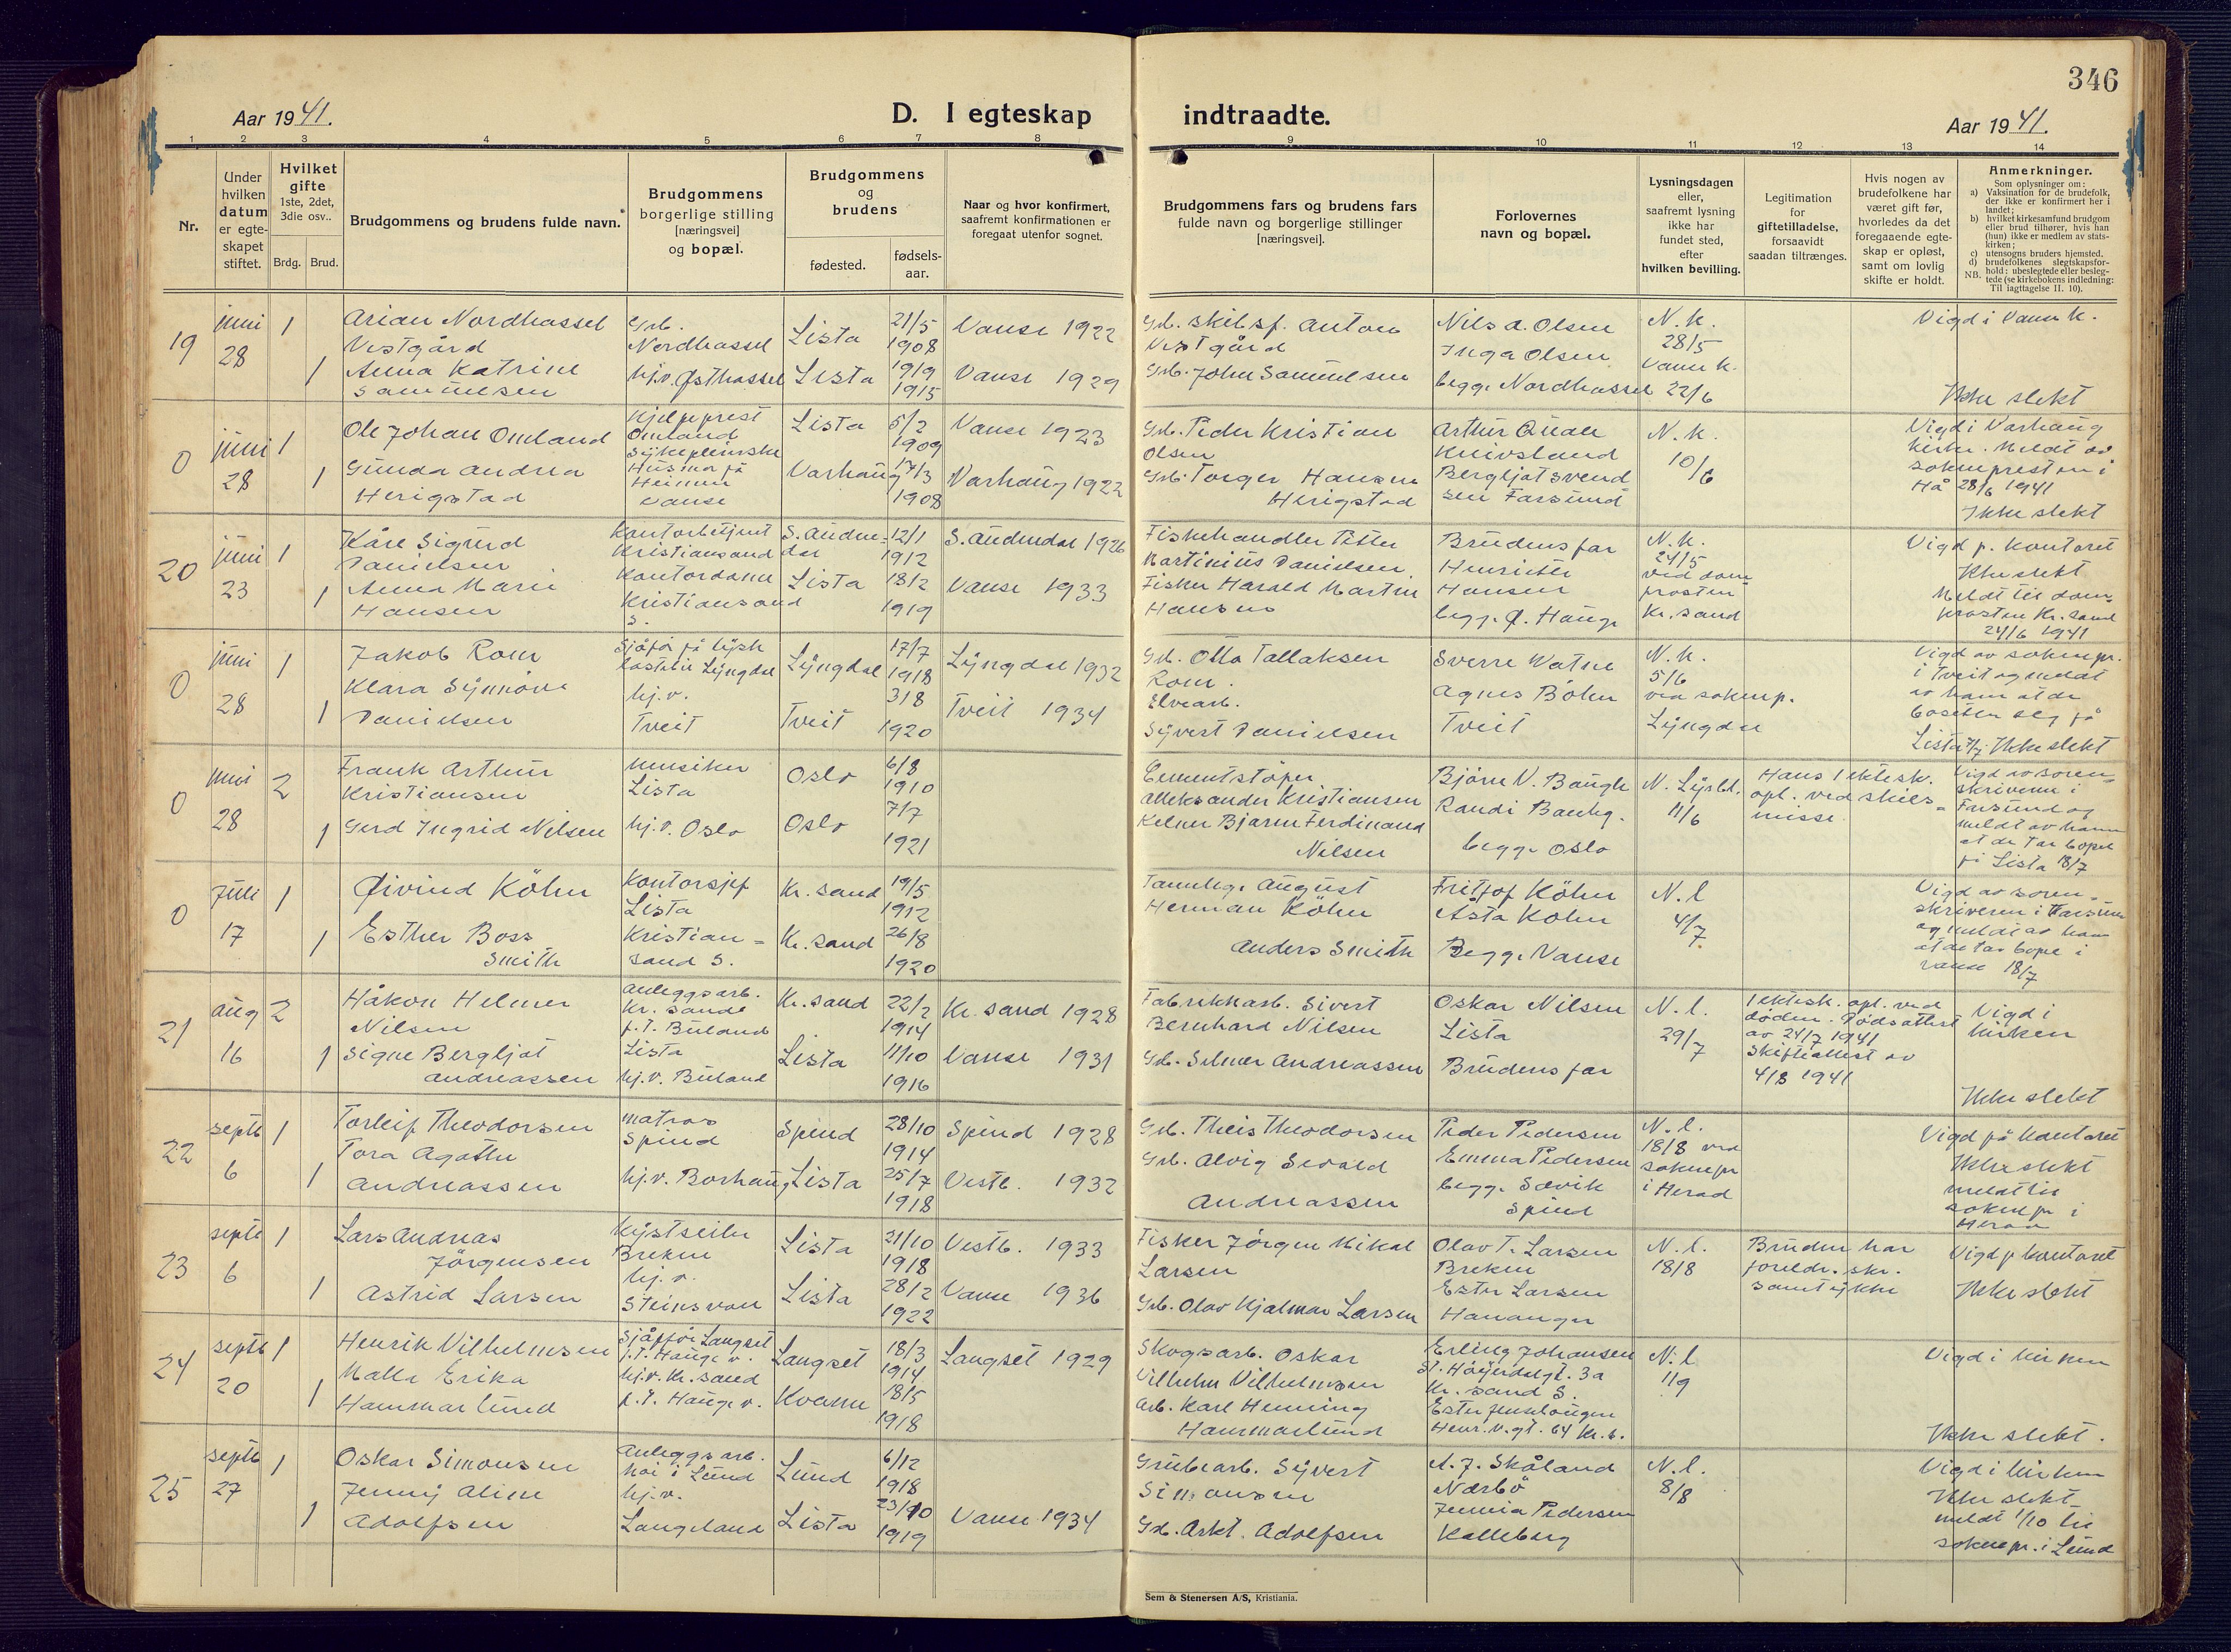 346
Aar 1941.
D. I egteskap indtraadte.
Aar 1941.
1 2 3 4 5 6 7 8 9 10 11 12 13 14
Nr.
Under hvilken datum er egte-skapet stiftet.
Hvilket gifte 1ste, 2det, 3die osv..
Brdg. Brud.
Brudgommens og brudens fulde navn.
Brudgommens borgerlige stilling [næringsvei] og bopæl.
Brudgommens og brudens
fødested.
fødsels-aar.
Naar og hvor konfirmert, saafremt konfirmationen er foregaat utenfor sognet.
Brudgommens fars og brudens fars fulde navn og borgerlige stillinger [næringsvei].
Forlovernes navn og bopæl.
Lysningsdagen eller, saafremt lysning ikke har fundet sted, efter hvilken bevilling.
Legitimation for giftetilladelse, forsaavidt saadan tiltrænges.
Hvis nogen av brudefolkene har været gift før, hvorledes da det foregaaende egte-skap er opløst, samt om lovlig skifte er holdt.
Anmerkninger.
Som oplysninger om:
a) Vaksination for de brudefolk, der ikke er konfirmert her i landet;
b) hvilket kirkesamfund brudgom eller brud tilhører, hvis han (hun) ikke er medlem av stats-kirken;
c) utensogns bruders hjemsted.
d) brudefolkenes slegtskapsfor-hold: ubeslegtede eller besleg-tede (se kirkebokens indledning: Til iagttagelse II. 10).
NB.
19 juni 28 1 Arian Nordhassel Vestgård Grb. Nordhassel Lista 21/5 1908 Vanse 1922 Grb. skibsf. Anton Vestgård Nils A. Olsen N.k. 28/5 Vigd i Vanse k.
1 Anna Katrine Samuelsen hj.v. Østhassel Lista 1915 Vanse 1929 Grb. John Samuelsen Inga Olsen begge Nordhassel Vanse k. 22/6 Ikke slekt
0 juni 28 1 Ole Johan Omland Hjelpeprest Omland Lista 5/2 1909 Vanse 1923 Grb. Peder Kristian Olsen Arthur Quale Knivsland N.k. 10/6 Vigd i Varhaug kirke. Meldt av soknepresten i Hå 28/6 1941
1 Gunda Andrea Herigstad Sykepleierske Husma på Heimen Vanse Varhaug 17/3 1908 Varhaug 1922 Grb. Torger Hansen Herigstad Bergljot Svendsen Farsund Ikke slekt
20 juni 23 1 Kåre Sigurd Danielsen Kontorbetjent Kristiansand S. Audnedal 12/1 1912 S. Audnedal 1926 Fiskehandler Peter Martinius Danielsen Brudens far N.k. 24/5 ved domprosten Kr.sand Vigd p. kontoret Ikke slekt
1 Anna Marie Hansen Kontordame Kristiansand S. Lista 18/2 1919 Vanse 1933 Fisker Harald Martin Hansen Henriette Hansen begge Ø. Hauge Meldt til domprosten Kr. sand 24/6 1941
0 juni 28 1 Jakob Rom Sjåfør Lyngdal Lyngdal 17/7 1918 Lyngdal 1932 Grb. Otto Tallaksen Rom. Sverre Watne N.k. 5/6 ved soknep. Lyngdal Vigd av soknepr. i Tveit og meldt av ham at de bosetter seg på Lista
1 Klara Synnøve Danielsen hj.v. Tveit Tveit 3/8 1920 Tveit 1934 Elvearb. Syvert Danielsen Agnes Bøhn Tveit Ikke slekt
0 juni 28 2 Frank Arthur Kristiansen musiker Lista Oslo 6/8 1910 Cementstøper Alleksander Kristiansen Bjørn V. Baugh N. 11/6 Hans 1 ektesk. opl. ved skilsmisse Vigd av sorenskriveren i Farsund og meldt av ham at de tar bopel på Lista 18/7
1 Gerd Ingrid Nilsen hj.v. Oslo Oslo 7/7 1921 Kelner Bjarne Ferdinand Nilsen Randi Baugh. begge Oslo
0 Juli 17 1 Øivind Köhn Kontorsjef Lista Kr. sand 19/5 1912 Tannlege August Herman Köhn Fritjof Köhn N.l 4/7 Vigd av sorenskriveren i Farsund og meldt av ham at de tar bopel i Vanse 18/7
1 Esther Boss Smith Kristiansand S. Kr. sand 26/8 1920 Anders Smith Åsta Köhn Begge Vanse
21 aug 16 2 Håkon Helmer Nilsen Anleggsarb. Kr. sand p.t. Buland Lista Kr. sand 22/2 1914 Kr. sand 1928 Fabrikkarb. Sivert Bernhard Nilsen Oskar Nilsen Lista N.l. 29/7 1 ektesk. opl. ved døden. Dødsattest av 24/7 1941 Skifteattest av 4/8 1941 Vigd i kirken
1 Signe Bergljot Andreassen hj.v. Buland Lista 11/10 1916 Vanse 1931 Grb. Selmer Andreassen Brudens far Ikke slekt
22 septb 6 1 Torleif Theodorsen matros Spind Spind 28/10 1914 Spind 1928 Grb. Theis Theodorsen Peder Pedersen N.l. 18/8 ved soknepr i Herad Vigd på kontoret Ikke slekt
1 Tora Agathe Andreassen hj.v. Borhaug Lista 25/7 1918 Vestb. 1932 Grb. Alvig Sevald Andreassen Emma Pedersen begge Sævik Spind meldt til soknepr i Herad
23 septb 6 1 Lars Andreas Jörgensen Kystseiler Brekne Lista 21/10 1918 Vestb. 1933 Fisker Jörgen Mikal Larsen Olav T. Larsen Brekne N.l. 18/8 Bruden har foreldr. skr. samtykke Vigd p kontoret
1 Astrid Larsen hj.v. Steinsvon Lista 28/2 1922 Vanse 1936 Grb. Olav Hjalmar Larsen Ester Larsen Hananger Ikke slekt
24 septb 20 1 Henrik Vilhelmsen Sjåfför Langset p.t. Hauge v. Langset 18/3 1914 Langset 1929 Skogsarb. Oskar Vilhelm Vilhelmsen Erling Johansen St. Kr. sand S. N.l 11/9 Vigd i kirken
1 Malle Erika Hammarlund hj.v. Kr. sand p.t. Hauge v. 18/5 1918 Arb. Karl Henning Hammarlund Henr. W. gt. 64 Kr. s. Ikke slekt.
25 septb 27 1 Oskar Simonsen Anleggsarb. Moi i Lund Lund 6/12 1918 Grubearb. Syvert Simonsen A. J. Skåland Nærbø N.l. 8/8 Vigd i kirken Ikke slekt
1 Jenny Aline Adolfsen hj.v. Langeland Lista 23/10 1919 Vanse 1934 Grb. Adolfsen Pedersen Kalleberg meldt 1/10 til soknepr. i Lund
Sem & Stenersen A/S, Kristiania.